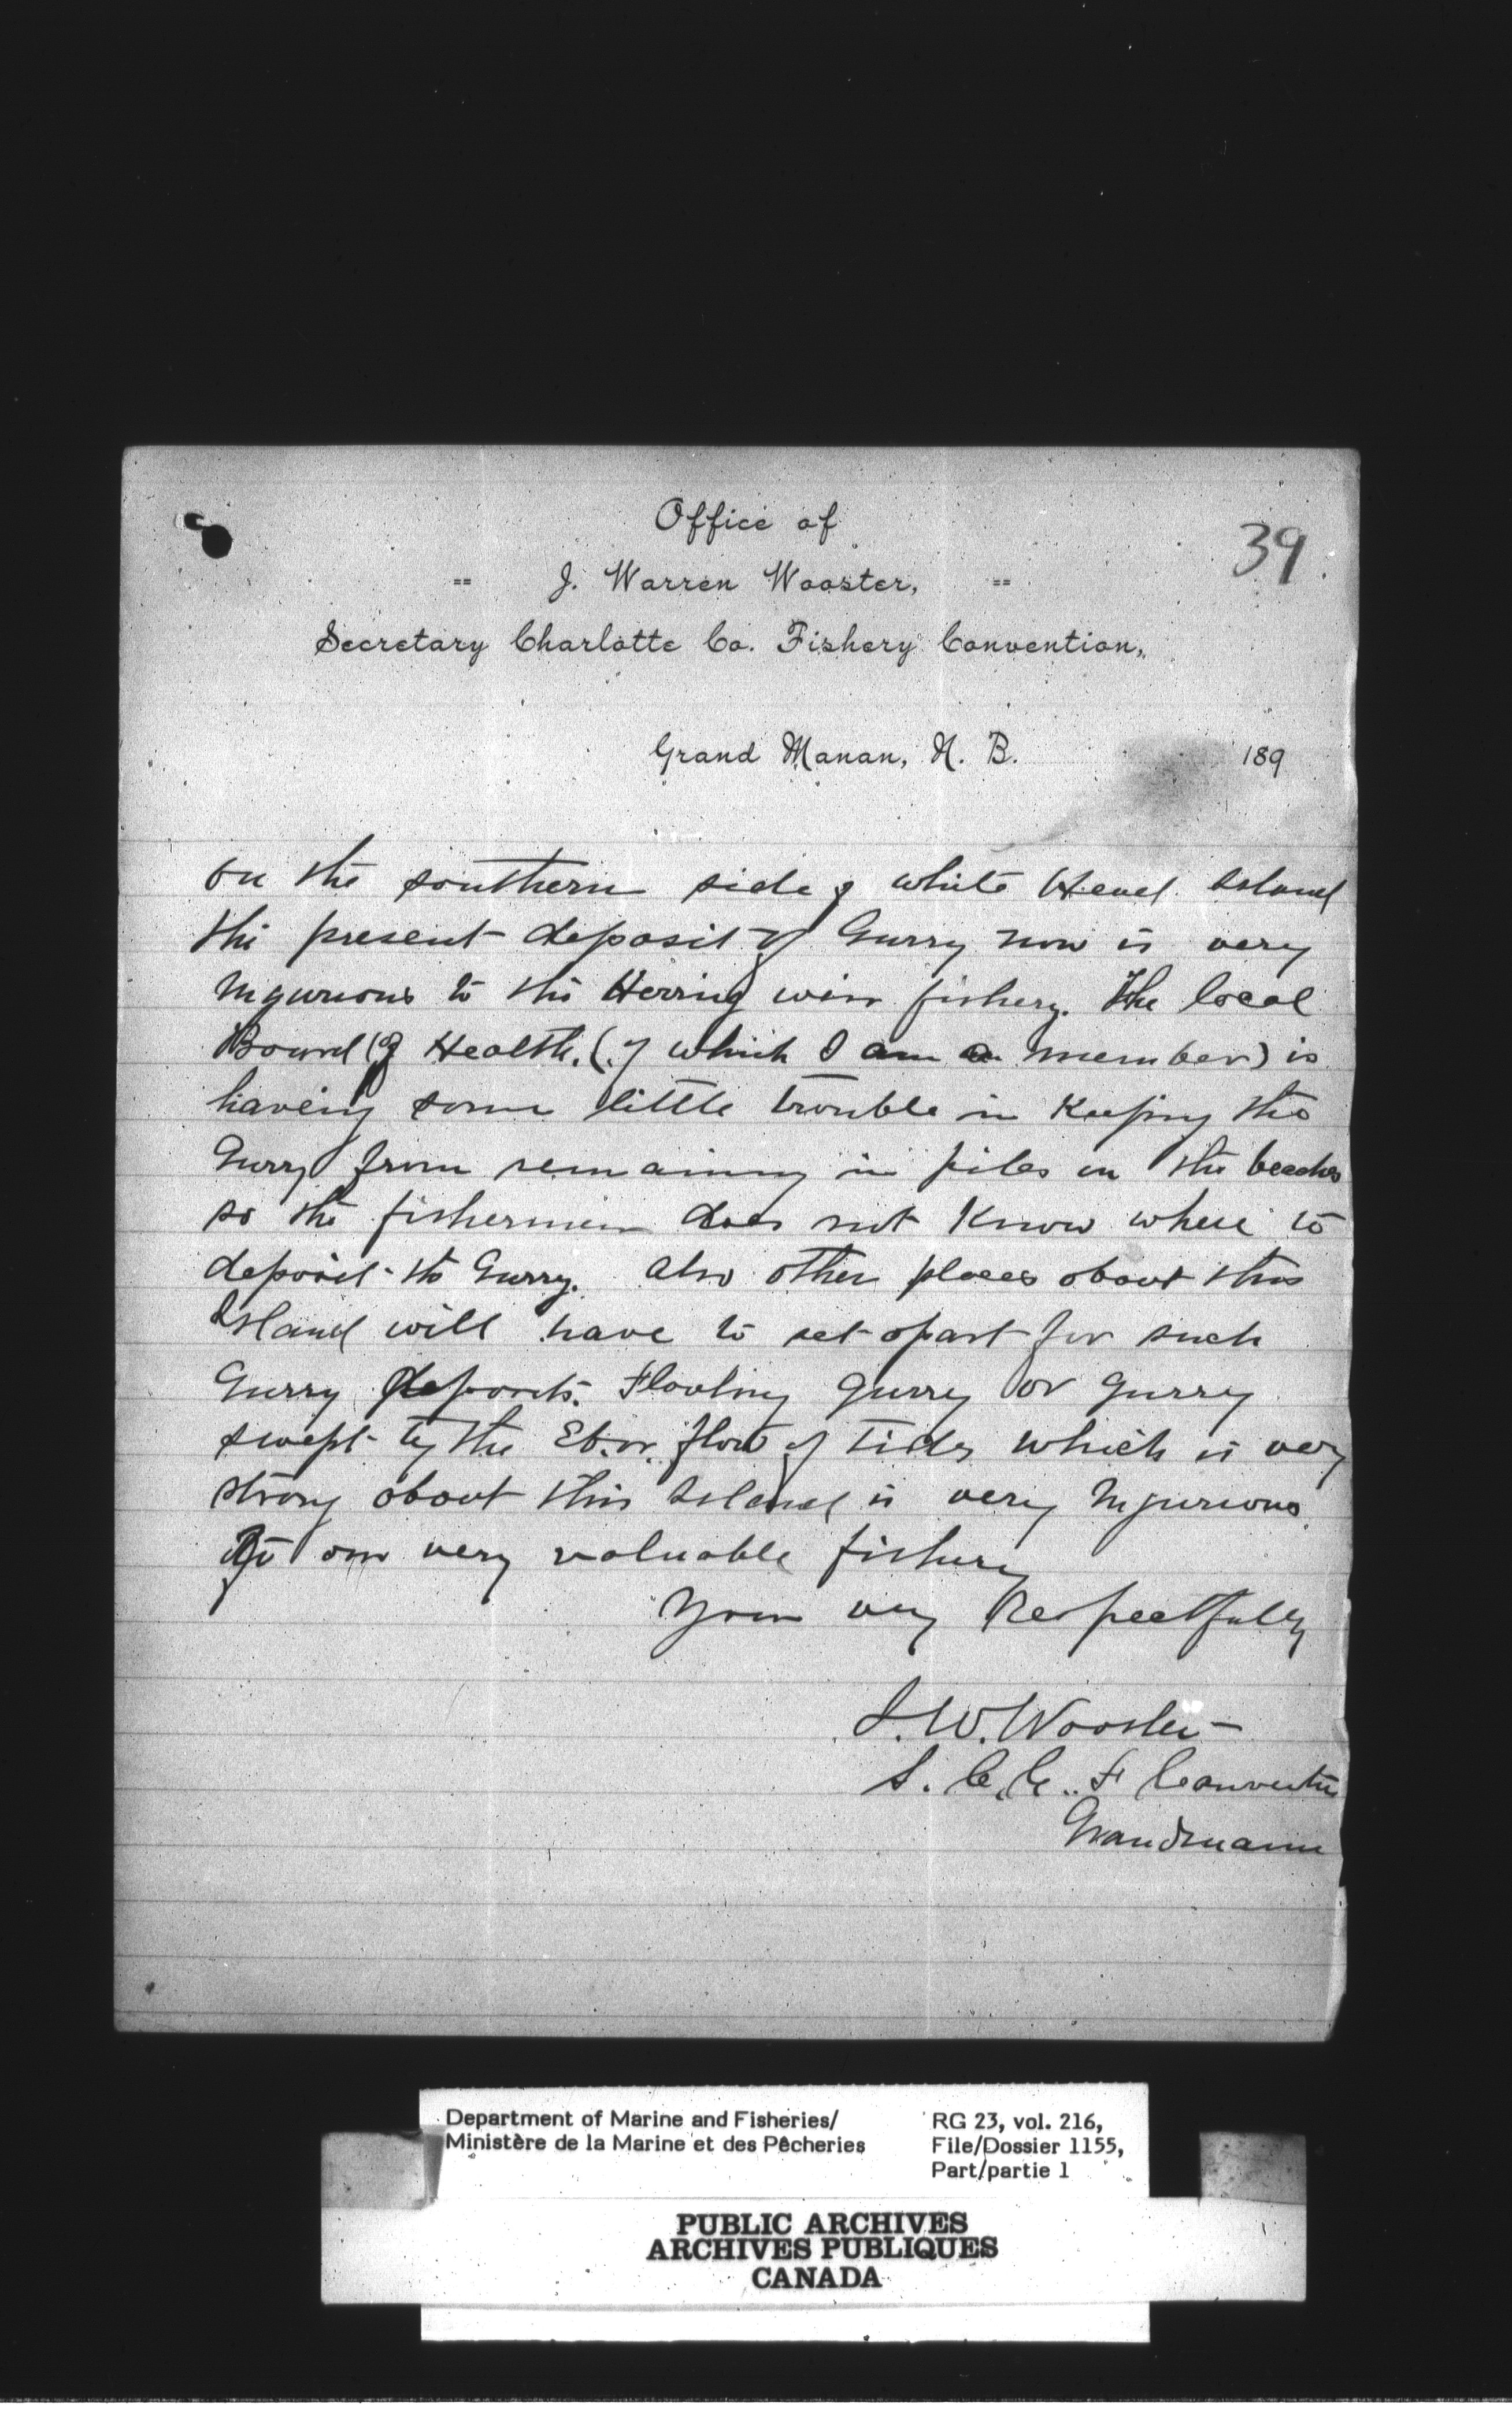 Office of
39
= J. Warren Wooster, =
Secretary Charlotte Co. Fishery Convention,
Grand Manan, N. B. 189
on the southern side of white Head Island
the present deposit of Gurry now is very
Injurious to the Herring weir fishery. The local
Board of Health, (of which I am a member) is
haveing some little trouble in Keeping the
Gurry from remaining in piles on the beaches
so the fishermen does not Know where to
deposit the Gurry. Also other places about this
Island will have to set apart for such
Gurry deposits. Floating gurry or gurry
swept by the Eb. or. flow of Tides which is very
strong about this Island is very Injurious
to our very valuable fishery
Yours very Respectfully
J. W. Wooster
S. C. C. F Convention
Grandmanan
Department of Marine and Fisheries/
Ministère de la Marine et des Pêcheries
RG 23, vol. 216,
File/Dossier 1155,
Part/partie 1
PUBLIC ARCHIVES
ARCHIVES PUBLIQUES
CANADA